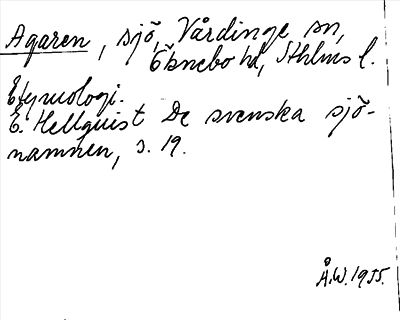 Agaren, sjö, Vårdinge sn,
Öknebo hd, Sthlms l.
Etymologi.
E. Hellquist De svenska sjö-
namnen, s. 19.
Å.W. 1955.